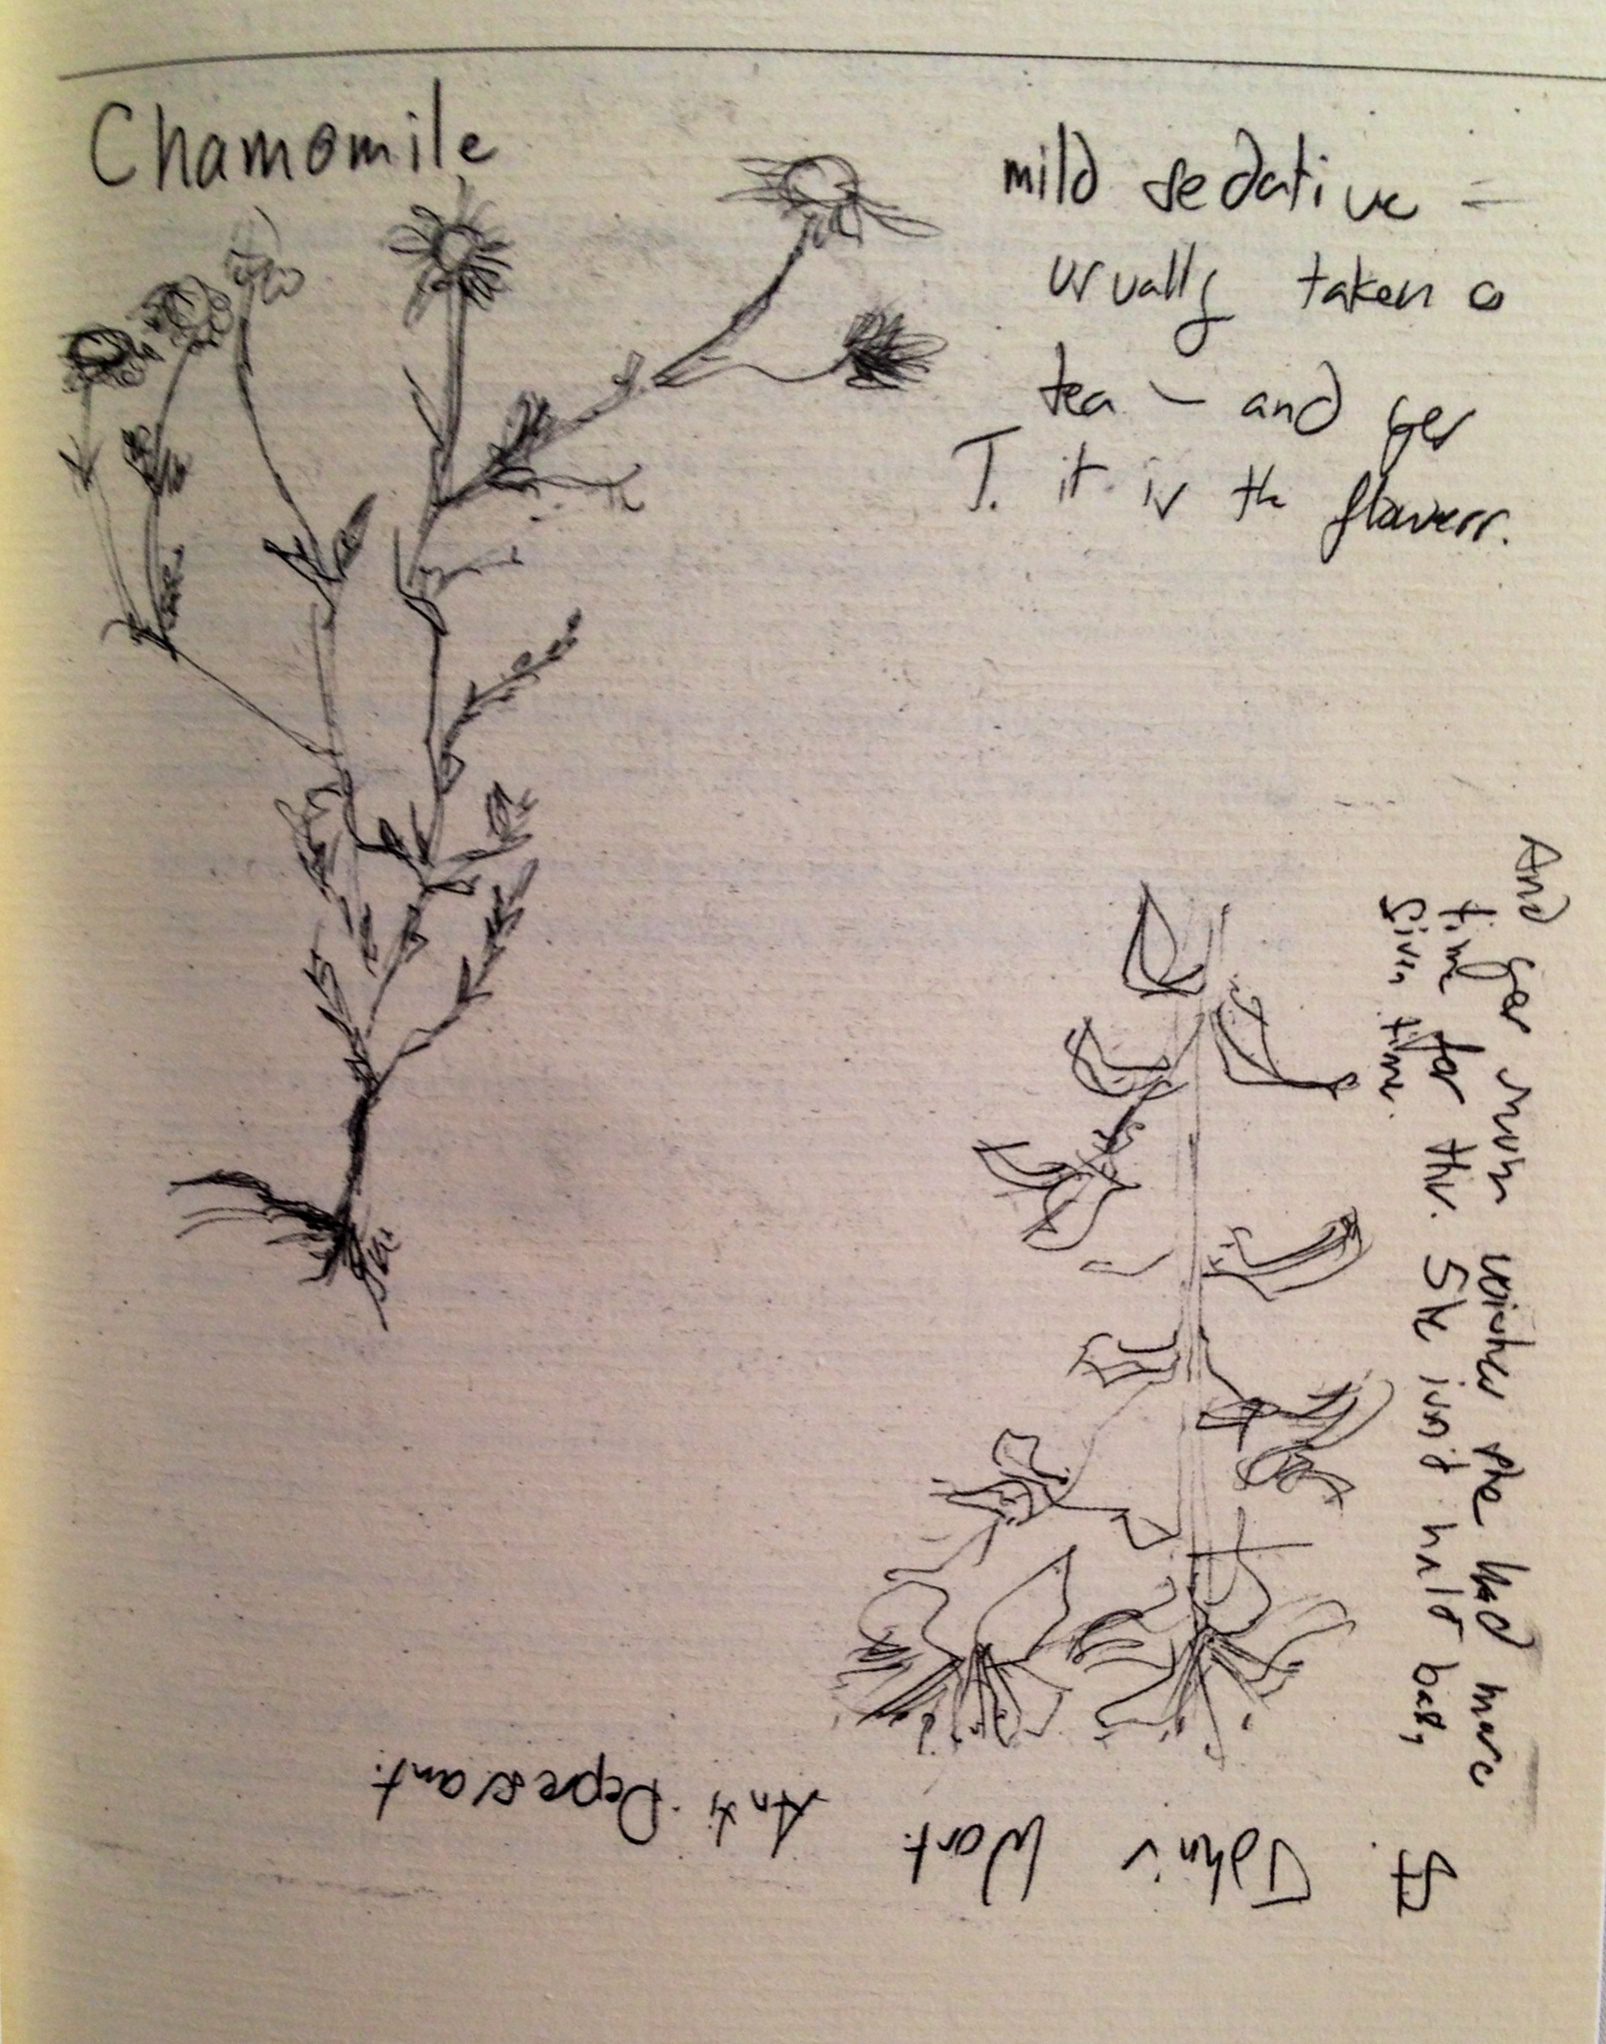 Chamomile
mild sedative -
usually taken as
tea - and yes
T. it is the flowers.
And yes mum wishes she had more
time for this. She isn't half bad,
Given time.
St. John's Wort.
Anti Depressant.